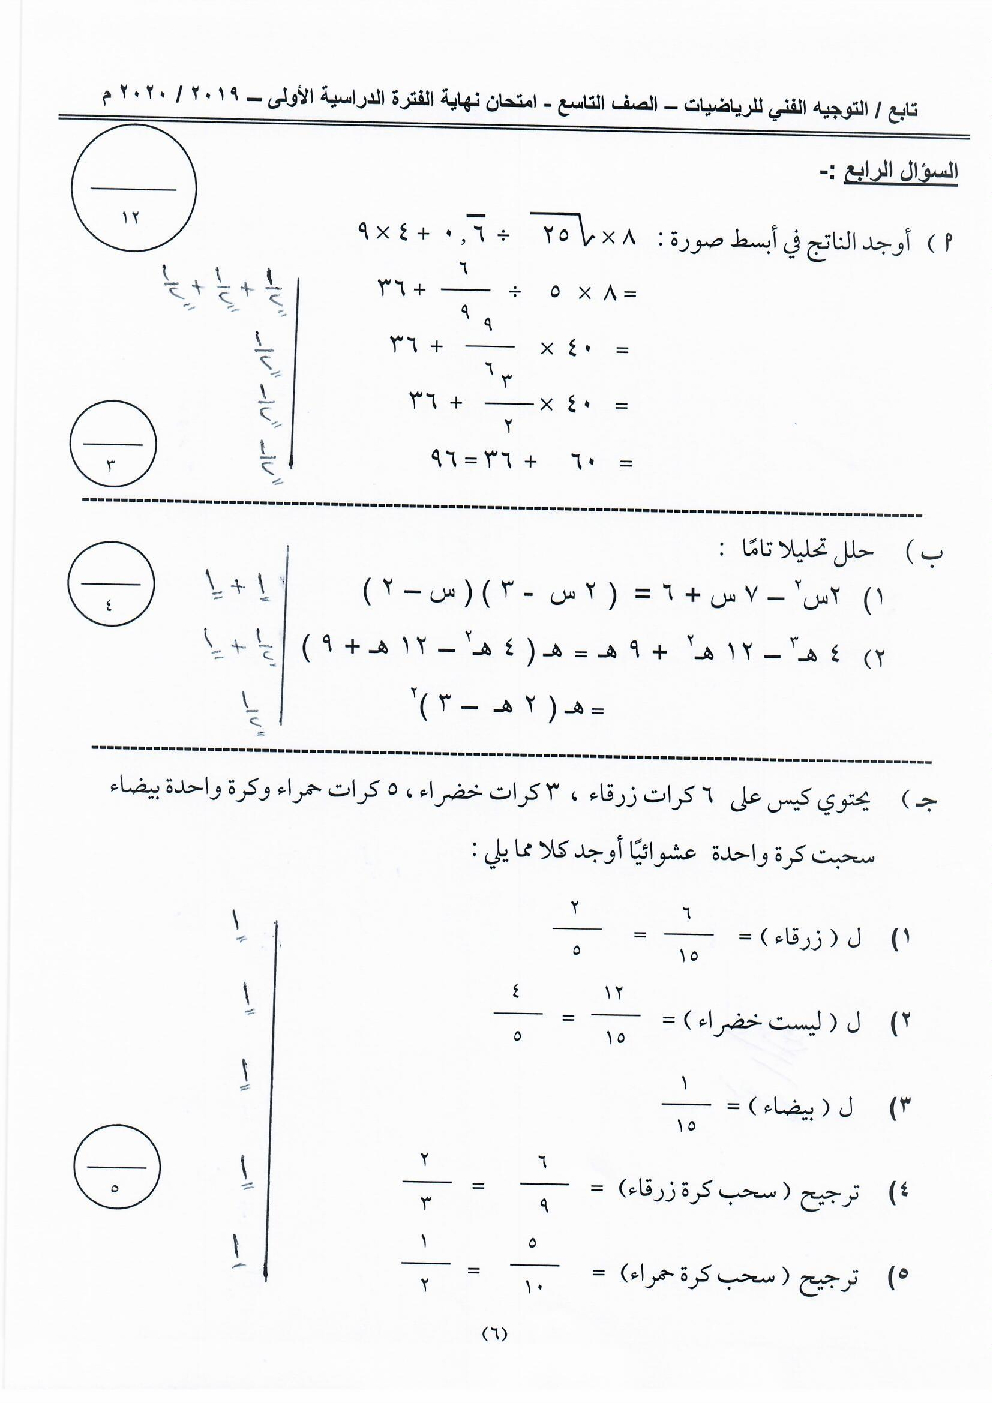 تابع / التوجيه الفني للرياضيات – الصف التاسع - امتحان نهاية الفترة الدراسية الأولى – ٢٠١٩ / ٢٠٢٠ م
السؤال الرابع :-
١٢
أ ) أوجد الناتج في أبسط صورة : ٨ × √٢٥ ÷ ٠,٦̅ + ٤ × ٩
= ٨ × ٥ ÷ ٦/٩ + ٣٦
١/٢ + ١/٢ + ١/٢
= ٤٠ × ٩/٦ + ٣٦
١/٢
= ٤٠ × ٣/٢ + ٣٦
١/٢
= ٦٠ + ٣٦ = ٩٦
١/٢
٣
ب ) حلل تحليلا تامًا :
١) ٢س² – ٧ س + ٦ = ( ٢ س - ٣ ) ( س – ٢ )
١ + ١
٤
٢) ٤ هـ³ – ١٢ هـ² + ٩ هـ = هـ ( ٤ هـ² – ١٢ هـ + ٩ )
١/٢ + ١
= هـ ( ٢ هـ – ٣ )²
١/٢
جـ ) يحتوي كيس على ٦ كرات زرقاء ، ٣ كرات خضراء ، ٥ كرات حمراء وكرة واحدة بيضاء
سحبت كرة واحدة عشوائيًا أوجد كلا مما يلي :
١) ل ( زرقاء ) = ٦/١٥ = ٢/٥
١
٢) ل ( ليست خضراء ) = ١٢/١٥ = ٤/٥
١
٣) ل ( بيضاء ) = ١/١٥
١
٤) ترجيح ( سحب كرة زرقاء) = ٦/٩ = ٢/٣
١
٥
٥) ترجيح ( سحب كرة حمراء) = ٥/١٠ = ١/٢
١
(٦)